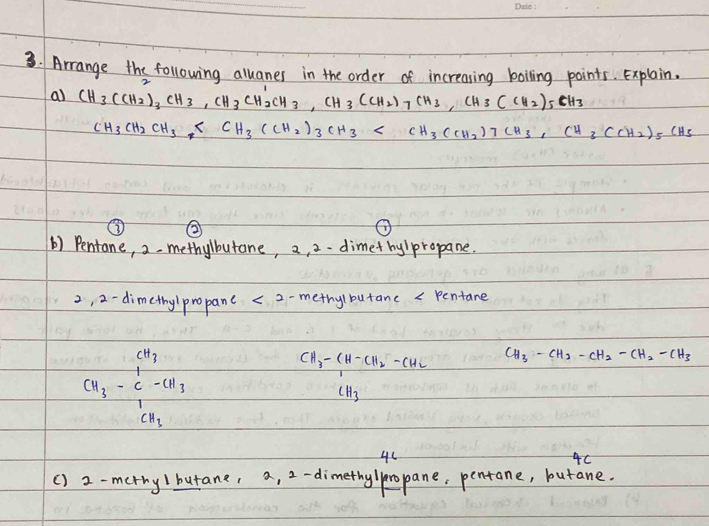 Date :
3. Arrange the following alkanes in the order of increasing boiling points. Explain.
2 1
a) CH3(CH2)3 CH3 , CH3 CH2CH3 , CH3 (CH2)7 CH3 , CH3 (CH2)5 CH3
CH3 CH2 CH3 < CH3 (CH2)3 CH3 < CH3 (CH2)7 CH3 , CH3 (CH2)5 CH3
3 2 1
b) Pentane, 2-methylbutane, 2,2-dimethylpropane.
2,2-dimethylpropane < 2-methylbutane < Pentane
CH3 CH3-CH-CH2-CH2 CH3-CH2-CH2-CH2-CH3
CH3-C-CH3 CH3
CH3
4C 4C
c) 2-methylbutane, 2,2-dimethylpropane, pentane, butane.